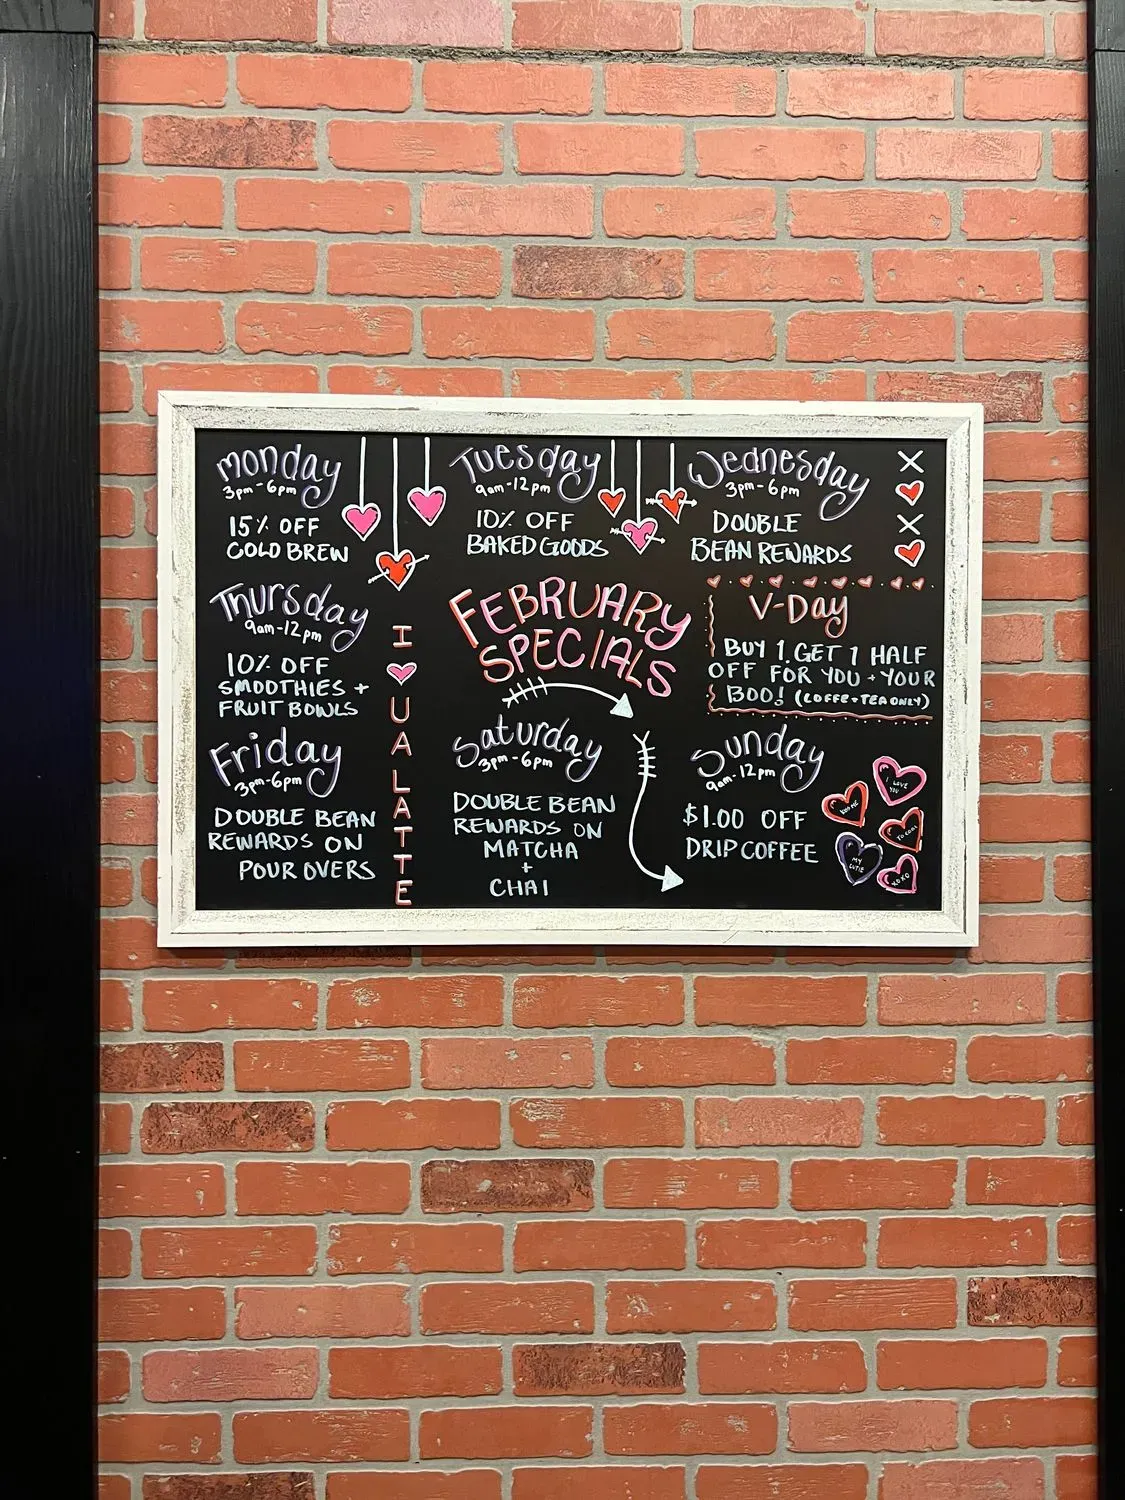 monday
3pm-6pm
15% OFF
COLD BREW
Tuesday
9am-12pm
10% OFF
BAKED GOODS
Wednesday
3pm-6pm
DOUBLE
BEAN REWARDS
X
X
Thursday
9am-12pm
10% OFF
SMOOTHIES +
FRUIT BOWLS
I
U
A
LATTE
FEBRUARY
SPECIALS
V-Day
BUY 1 GET 1 HALF
OFF FOR YOU + YOUR
BOO! (COFFE+TEA ONLY)
Friday
3pm-6pm
DOUBLE BEAN
REWARDS ON
POUR OVERS
Saturday
3pm-6pm
DOUBLE BEAN
REWARDS ON
MATCHA
+
CHAI
Sunday
9am-12pm
$1.00 OFF
DRIP COFFEE
I LOVE
YOU
MY
CUTIE
XOXO